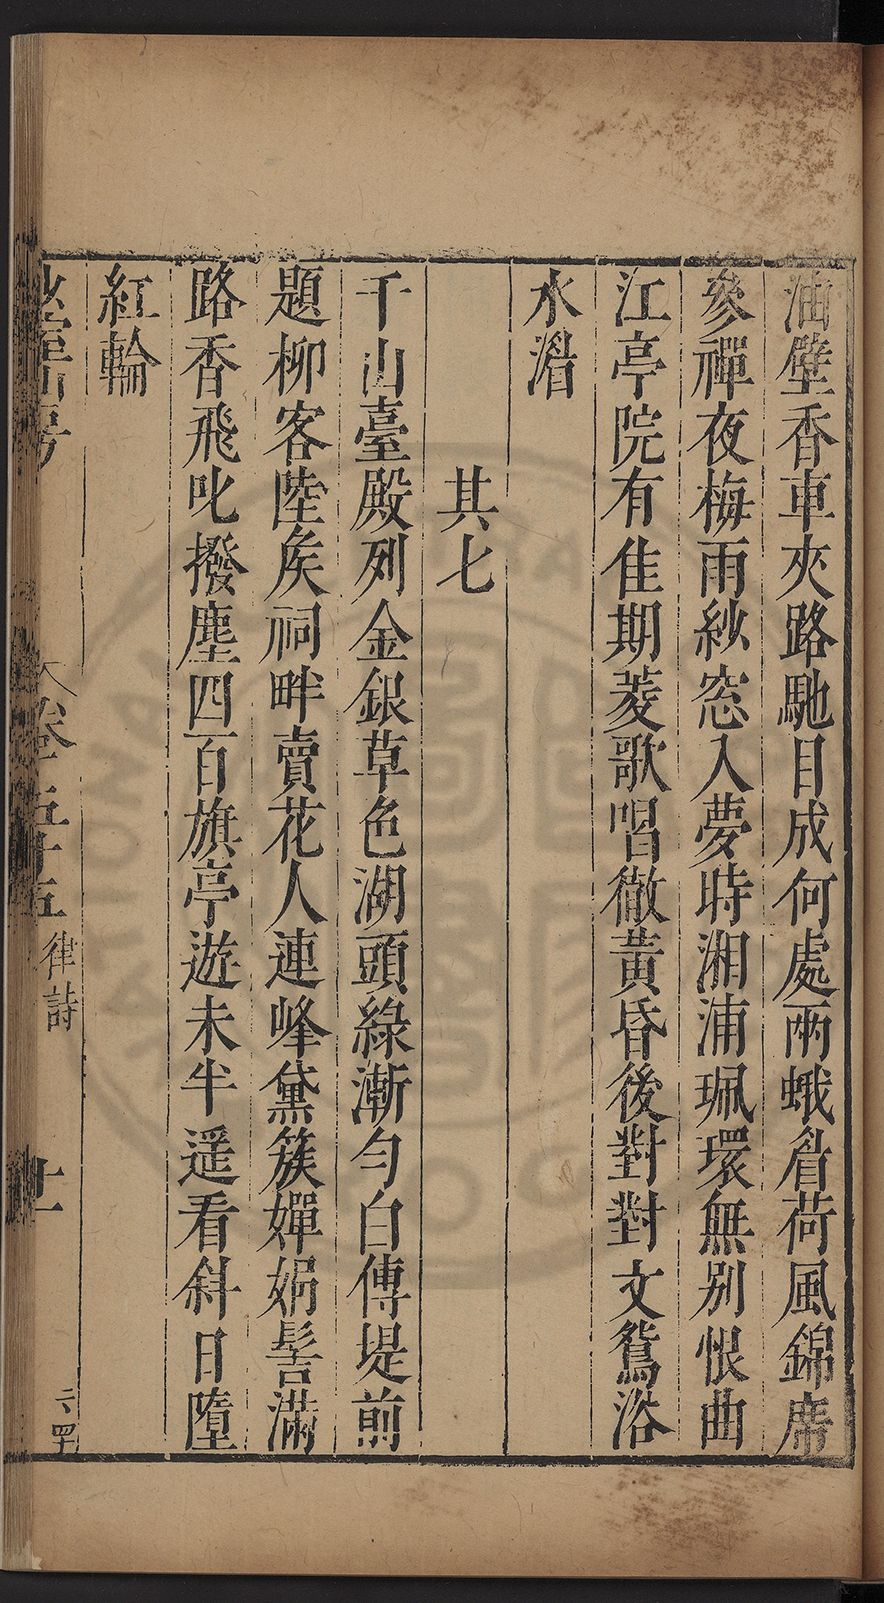 油壁香車夾路馳目成何處兩蛾眉荷風錦席
參禪夜梅雨紗窓入夢時湘浦珮環無别恨曲
江亭院有佳期菱歌唱徹黃昏後對對文鴛浴
水湄
其七
千山臺殿列金銀草色湖頭綠漸勻白傅堤前
題柳客陸矦祠畔賣花人連峰黛簇嬋娟髻滿
路香飛叱撥塵四百旗亭遊未半遥看斜日墮
紅輪
山房 卷五十五 律詩 十一 六四